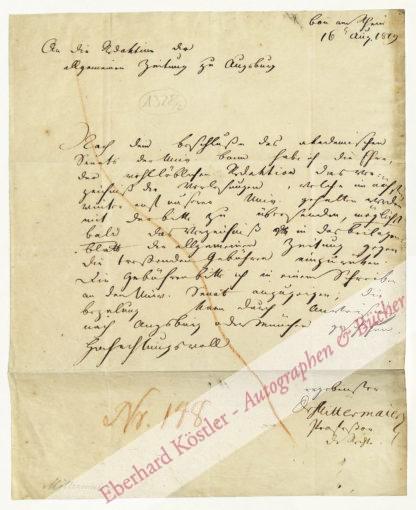 Bonn am Rhein
16 Aug. 1819
An die Redaktion der
allgemeinen Zeitung zu Augsburg
Nach dem Beschluße des akademischen
Senats der Univ. Bonn habe ich die Ehre,
der wohllöblichen Redaktion das Ver-
zeichniß der Vorlesungen, welche im nächst
winter auf unserer Univ. gehalten werden
mit der bitte zu übersenden, möglichst
bald das Verzeichniß in das beilagen
blatt der allgemeinen Zeitung gegen
die treffenden Gebühren einzurücken
Die Gebühren bitte ich in einem Schreiben
an den Univ. Senat anzuzeigen, die
bezahlung kann durch
nach Augsburg oder München
Hochachtungsvoll
ergebenster
Dr Mittermaier
Professor
der Rechte
Nr. 148
Mittermaier
Eberhard Köstler - Autographen & Bücher